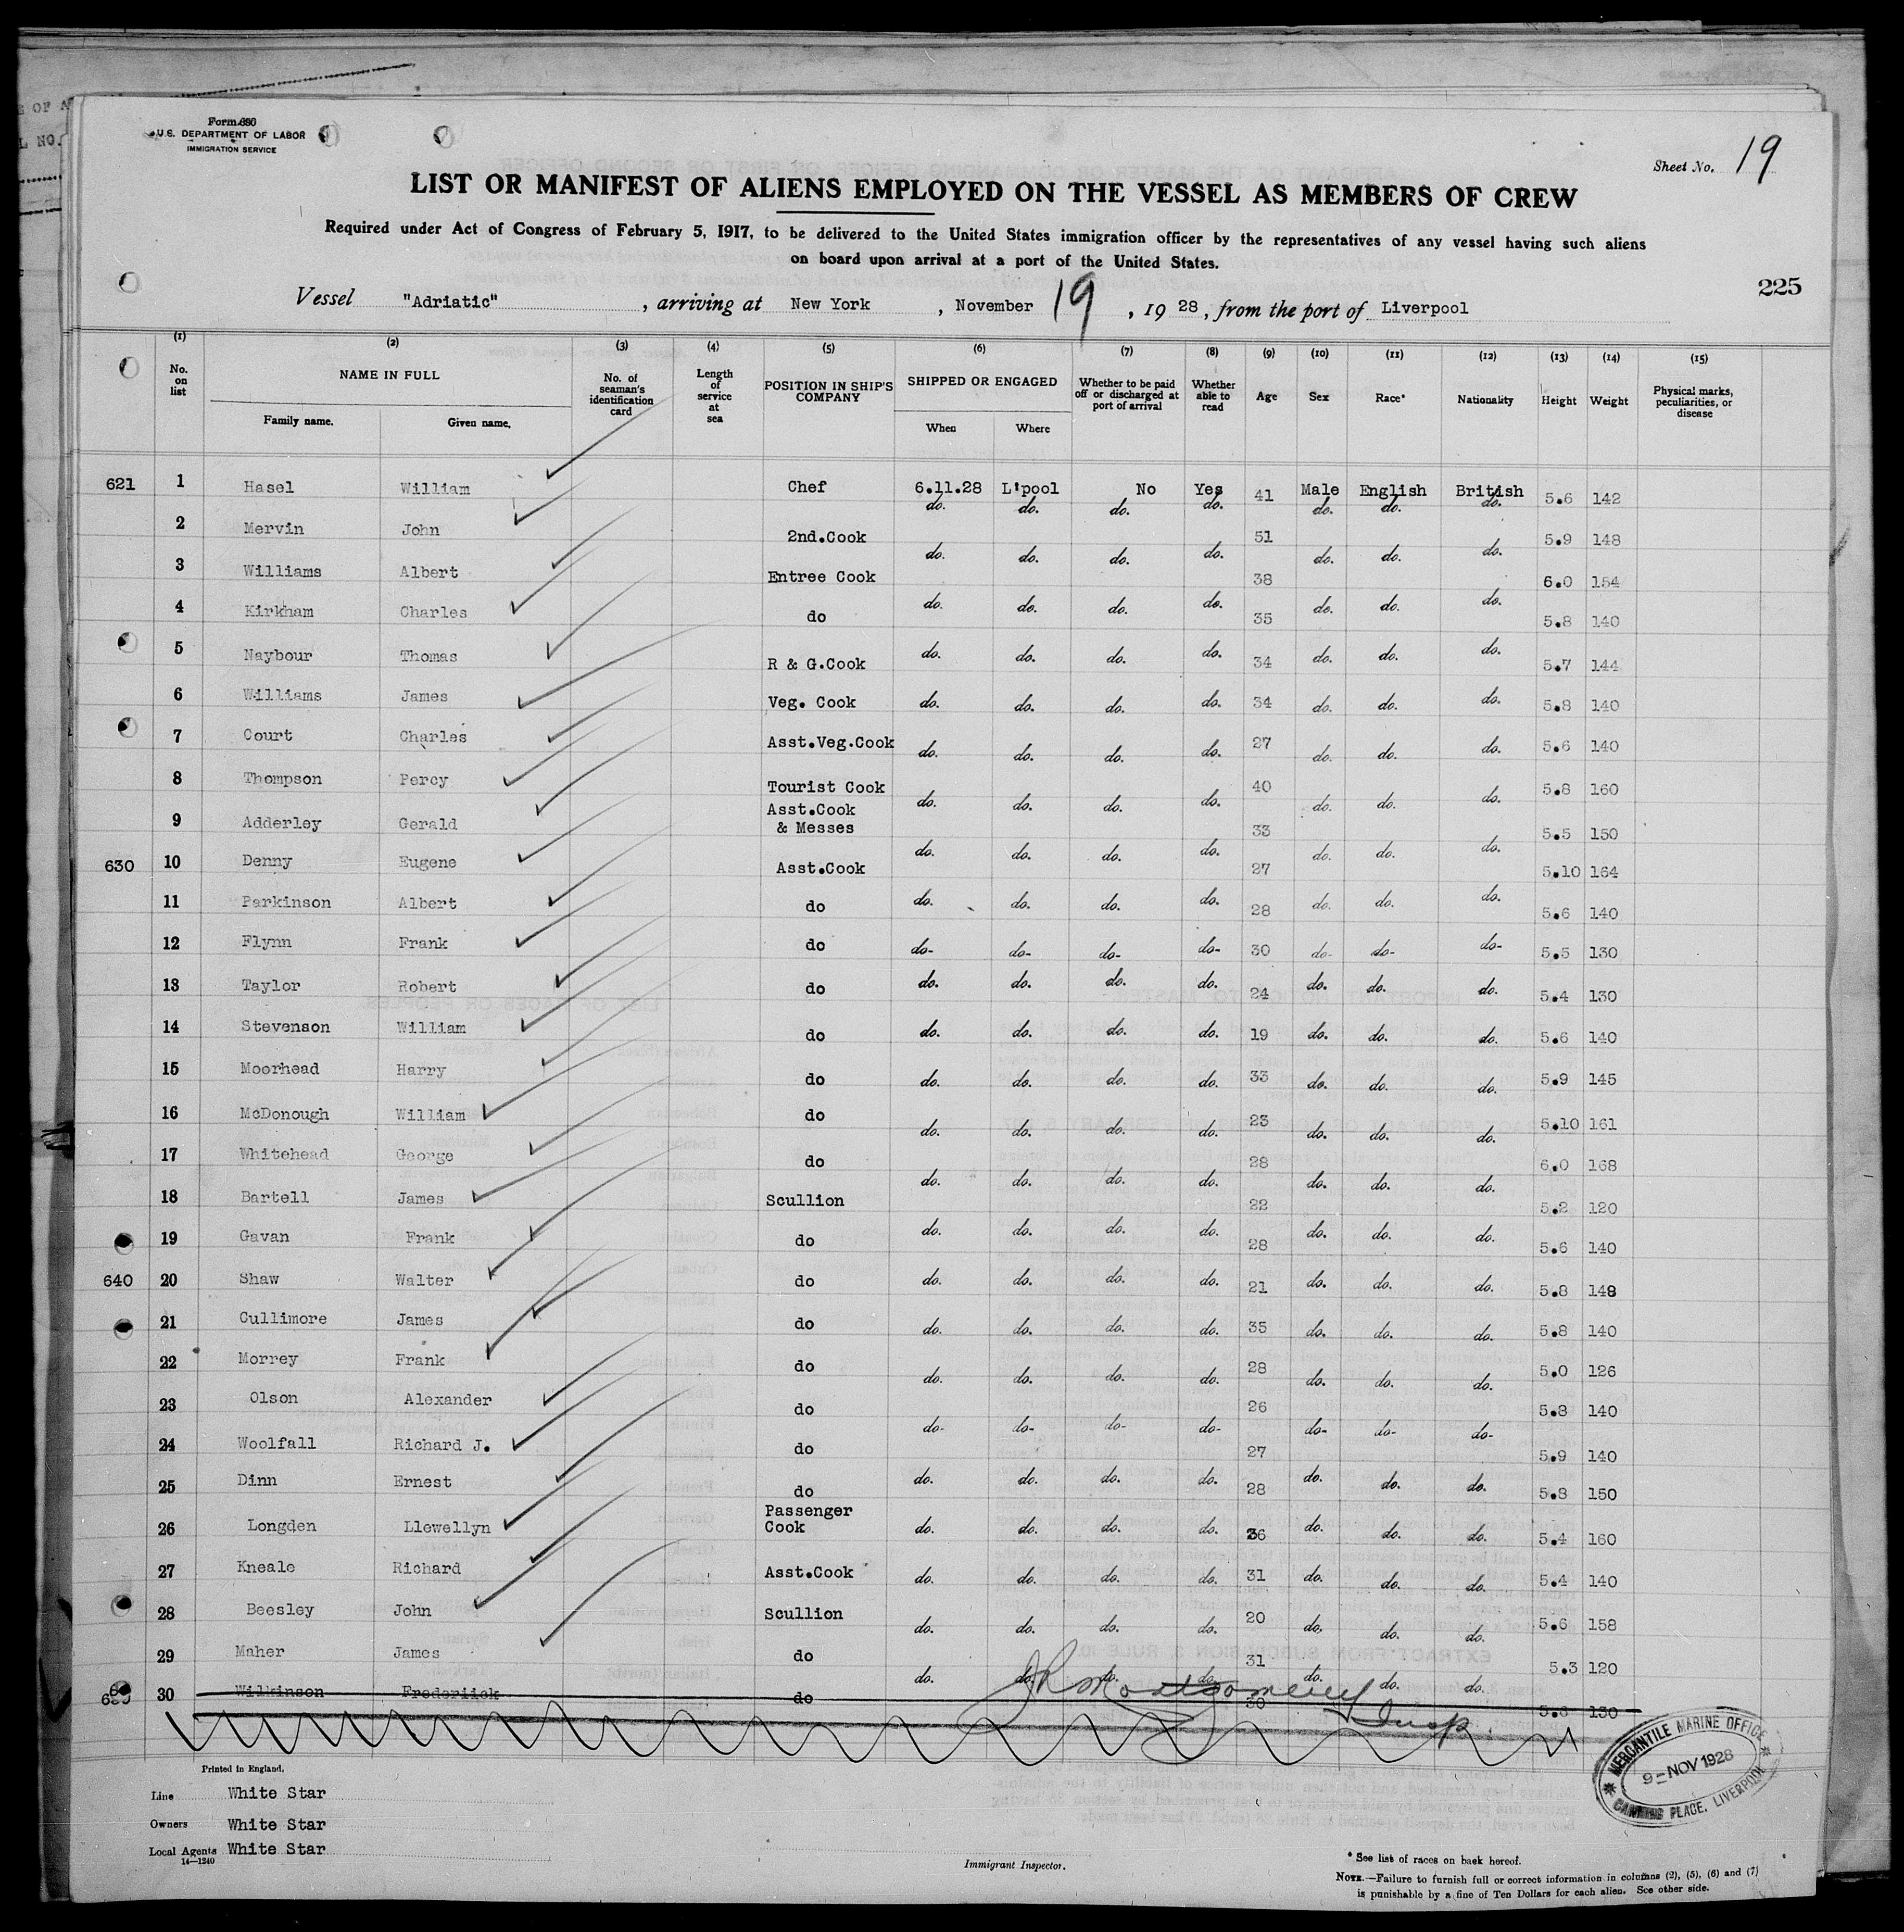 Form 680
U.S. DEPARTMENT OF LABOR
IMMIGRATION SERVICE
Sheet No. 19
LIST OR MANIFEST OF ALIENS EMPLOYED ON THE VESSEL AS MEMBERS OF CREW
Required under Act of Congress of February 5, 1917, to be delivered to the United States immigration officer by the representatives of any vessel having such aliens
on board upon arrival at a port of the United States.
225
Vessel "Adriatic", arriving at New York, November 19, 1928, from the port of Liverpool
(1) (2) (3) (4) (5) (6) (7) (8) (9) (10) (11) (12) (13) (14) (15)
No. on list NAME IN FULL Family name. Given name. No. of seaman's identification card Length of service at sea POSITION IN SHIP'S COMPANY SHIPPED OR ENGAGED When Where Whether to be paid off or discharged at port of arrival Whether able to read Age Sex Race* Nationality Height Weight Physical marks, peculiarities, or disease
621 1 Hasel William Chef 6.11.28 L'pool No Yes 41 Male English British 5.6 142
2 Mervin John 2nd.Cook do. do. do. do. 51 do. do. do. 5.9 148
3 Williams Albert Entree Cook do. do. do. do. 38 do. do. do. 6.0 154
4 Kirkham Charles do do. do. do. do. 35 do. do. do. 5.8 140
5 Naybour Thomas R & G.Cook do. do. do. do. 34 do. do. do. 5.7 144
6 Williams James Veg. Cook do. do. do. do. 34 do. do. do. 5.8 140
7 Court Charles Asst.Veg.Cook do. do. do. do. 27 do. do. do. 5.6 140
8 Thompson Percy Tourist Cook do. do. do. do. 40 do. do. do. 5.8 160
9 Adderley Gerald Asst.Cook & Messes do. do. do. do. 33 do. do. do. 5.5 150
630 10 Denny Eugene Asst.Cook do. do. do. do. 27 do. do. do. 5.10 164
11 Parkinson Albert do do. do. do. do. 28 do. do. do. 5.6 140
12 Flynn Frank do do- do- do- do- 30 do- do- do- 5.5 130
13 Taylor Robert do do. do. do. do. 24 do. do. do. 5.4 130
14 Stevenson William do do. do. do. do. 19 do. do. do. 5.6 140
15 Moorhead Harry do do. do. do. do. 33 do. do. do. 5.9 145
16 McDonough William do do. do. do. do. 23 do. do. do. 5.10 161
17 Whitehead George do do. do. do. do. 28 do. do. do. 6.0 168
18 Bartell James Scullion do. do. do. do. 22 do. do. do. 5.2 120
19 Gavan Frank do do. do. do. do. 28 do. do. do. 5.6 140
640 20 Shaw Walter do do. do. do. do. 21 do. do. do. 5.8 148
21 Cullimore James do do. do. do. do. 35 do. do. do. 5.8 140
22 Morrey Frank do do. do. do. do. 28 do. do. do. 5.0 126
23 Olson Alexander do do- do- do- do- 26 do- do- do- 5.8 140
24 Woolfall Richard J. do do. do. do. do. 27 do. do. do. 5.9 140
25 Dinn Ernest do do. do. do. do. 28 do. do. do. 5.8 150
26 Longden Llewellyn Passenger Cook do. do. do. do. 36 do. do. do. 5.4 160
27 Kneale Richard Asst.Cook do. do. do. do. 31 do. do. do. 5.4 140
28 Beesley John Scullion do. do. do. do. 20 do. do. do. 5.6 158
29 Maher James do do. do. do. do. 31 do. do. do. 5.3 120
30 Wilkinson Frederiick do 30 5.8 130
JR Montgomery Insp.
MERCANTILE MARINE OFFICE
9-NOV 1928
CANNING PLACE, LIVERPOOL
Printed in England.
Line White Star
Owners White Star
Local Agents White Star
14-1240
Immigrant Inspector.
* See list of races on back hereof.
NOTE.—Failure to furnish full or correct information in columns (2), (5), (6) and (7)
is punishable by a fine of Ten Dollars for each alien. See other side.